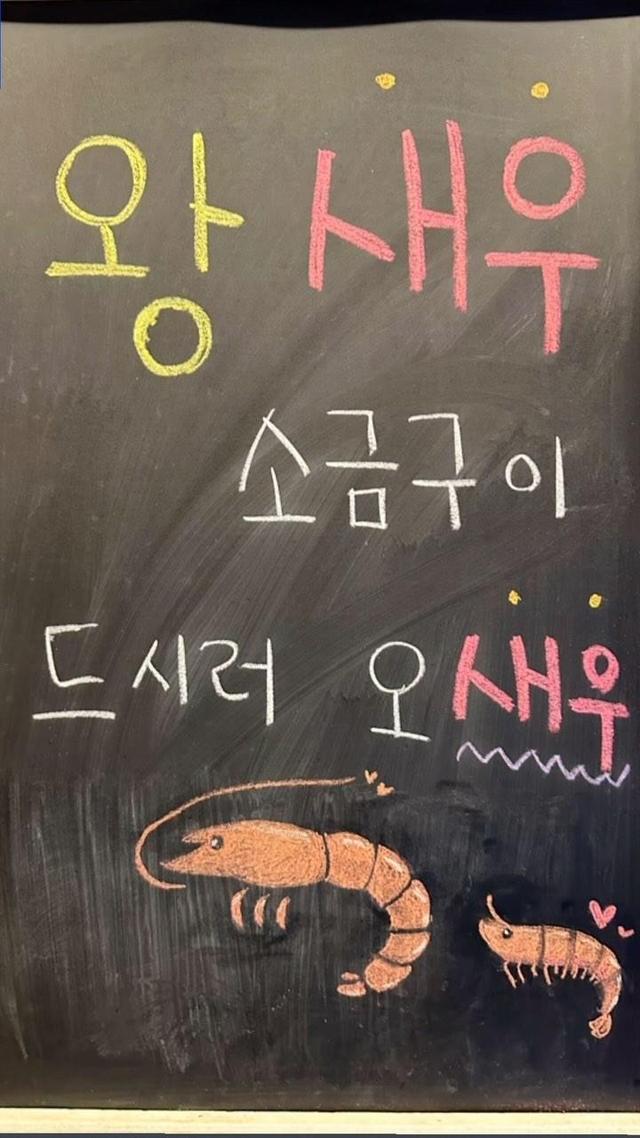 왕 새우
소금구이
드시러 오새우